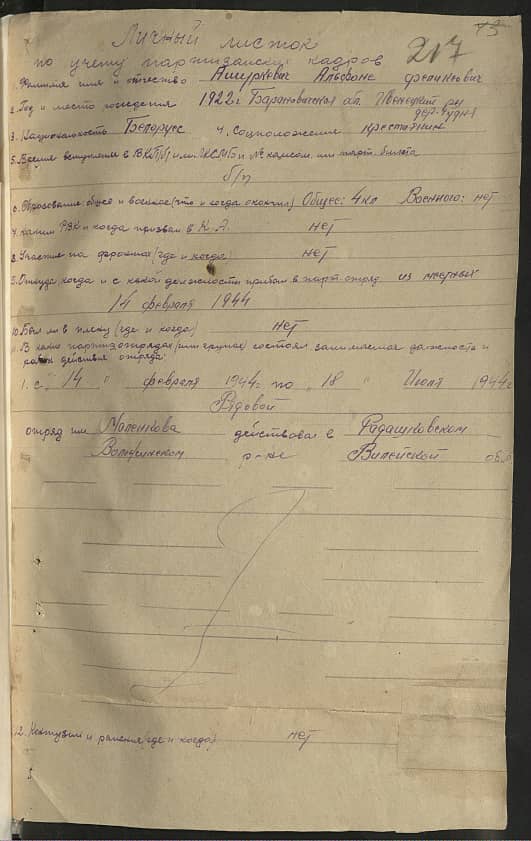 13
217
Личный листок
по учету партизанских кадров
1. Фамилия имя и отчество Ашуркевич Альфонс
2. Год и место рождения 1922 г. Барановичская обл. Ивенецкий р-н
дер.
3. Национальность Белорус 4. Соцположение крестьянин
5. Время вступления в ВКП(б) или ВЛКСМБ и № комсом. или парт. билета
б/п
6. Образование общее и военное (что и когда окончил) Общее: 4 кл Военного: нет
7. Каким РВК и когда призван в К. А. нет
8. Участие на фронтах (где и когда) нет
9. Откуда когда и с какой должности прибыл в парт. отряд из мирных
14 февраля 1944
10. Был ли в плену (где и когда) нет
11. В каких партизотрядах (или группах) состоял, занимаемая должность и
район действия отряда:
1. с " 14 " февраля 1944 г. по " 18 " Июля 1944 г.
Рядовой
отряд им Маленкова действовал в Радашковском
р-не Вилейской обл
12. Контузии и ранения (где и когда) нет